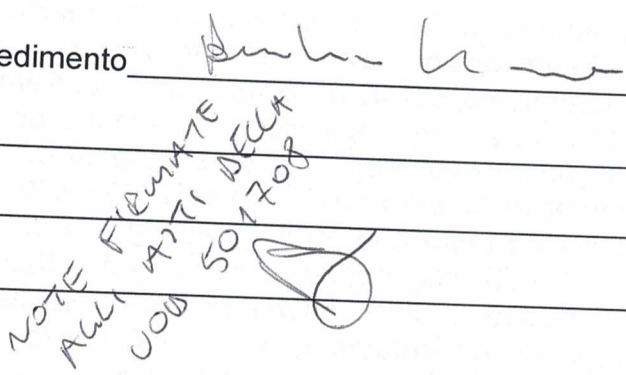 edimento
NOTE FIRMATE
AGLI ATTI DELLA
UOB 501708